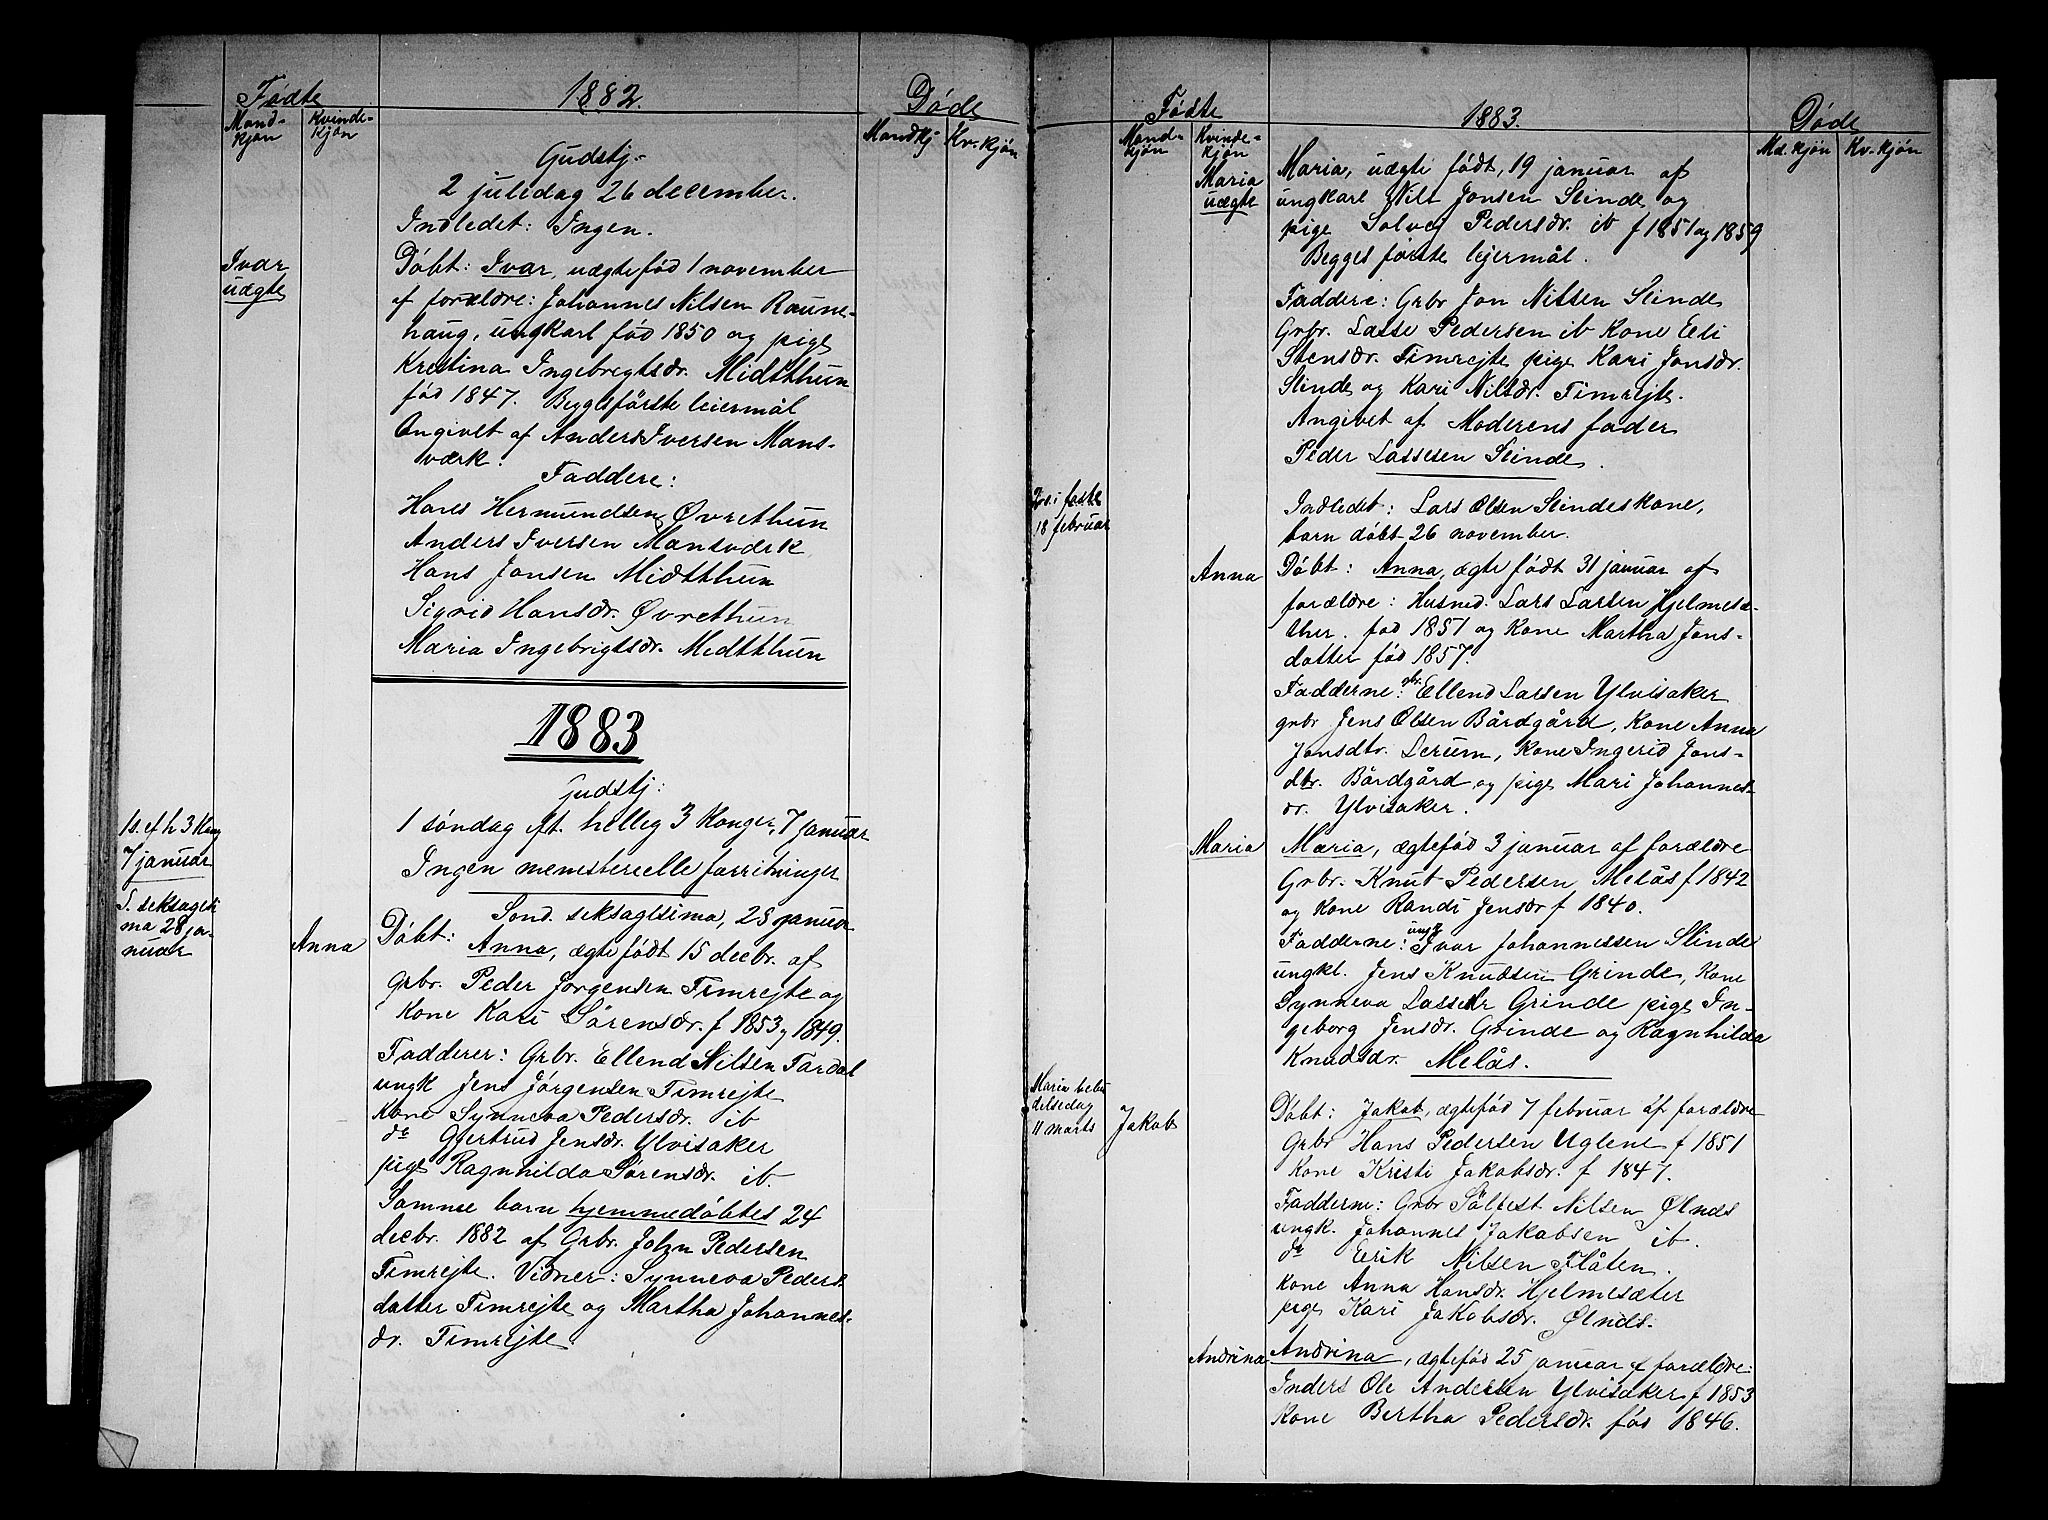 Fødte
1882.
Døde
Mand-
kjøn
Kvinde-
kjøn
Mandkj
Kv.-kjøn
Gudstj.-
2 juledag 26 december.
Indledet: Ingen.
Ivar
uægte
Døbt: Ivar, uægte fød 1 november
af forældre: Johannes Nilsen Raune-
haug, ungkarl fød 1850 og pige
Kristina Ingebrigtsdr. Midtthun
fød 1847. Begges første leiermål
Angivet af Anders Iversen Mans-
værk.
Faddere:
Hans Hermundsen Øvrethun
Anders Iversen Mansværk
Hans Jonsen Midtthun
Sigrid Hansdr. Øvrethun
Maria Ingebrigtsdr. Midtthun
1883
Gudstj:
1 s. ef h 3 Kong
7 januar
1 søndag eft. hellig 3 Konger, 7 januar
Ingen menesterielle forretninger
S. seksagesi
ma 28 ja-
nuar
Sønd. seksagesima, 28 januar
Anna
Døbt:
Anna, ægte født 15 decbr. af
Grbr. Peder Jørgensen Timrejte og
Kone Kari Sørensdr. f 1853 og 1849.
Fadderer: Grbr. Ellend Nilsen Fardal
ungk Jens Jørgensen Timrejte
Kone Synneva Pedersdr. ib
do Gjertrud Jensdr. Ylvisaker
pige Ragnhilda Sørensdr. ib.
Samme barn hjemmedøbtes 24
decbr. 1882 af Grbr. John Pedersen
Timrejte. Vidner: Synneva Peders
datter Timrejte og Martha Johannes-
dr. Timrejte
Fødte
1883.
Døde
Mand-
kjøn
Kvinde-
kjøn
Md. kjøn
Kv.-kjøn
Maria
uægte
Maria, uægte født, 19 januar af
ungkarl Nils Jonsen Slinde og
pige Solvej Pedersdr. ib f 1851 og 1859
Begges første lejermål.
Faddere: Grbr Jon Nilsen Slinde
Grbr. Lasse Pedersen ib Kone Eli
Stensdr. Timrejte pige Kari Jonsdr.
Slinde og Kari Nilsdr. Timrejte.
Angivet af Moderens fader
Peder Lassesen Slinde.
2 s. i faste
18 februar
Indledet: Lars Olsen Slindes kone,
barn døbt 26 november.
Anna
Døbt: Anna, ægte født 31 januar af
forældre: Husmd. Lars Larsen Hjelmesæ-
ther. fød 1851 og Kone Martha Jons-
datter fød 1857.
Fadderne: gbr. Ellend Larsen Ylvisaker
grbr Jens Olsen Bårdgård, Kone Anna
Jonsdtr. Lerum, Kone Ingerid Jons-
dtr. Bårdgård og pige Mari Johannes-
dr. Ylvisaker.
Maria
Maria, ægtefød 3 januar af forældre
Grbr. Knut Pedersen Melås f 1842
og Kone Randi Jensdr f 1840.
Fadderne: ungk Ivar Johannessen Slinde
ungkl. Jens Knudsen Grinde, Kone
Synneva Lassedr Grinde pige In-
geborg Jensdr. Grinde og Ragnhilda
Knudsdr. Melås.
Maria bebu
delsedag
11 marts
Jakob
Døbt: Jakob, ægtefød 7 februar af forældre
Grbr Hans Pedersen Uglene f 1851
Kone Kristi Jakobsdr. f 1847.
Fadderne: Grbr Sølfest Nilsen Ølnds
ungk. Johannes Jakobsen ib.
do Eerik Nilsen Flåten.
Kone Anna Hansdr. Hjelmesæter
pige Kari Jakobsdr. Ølnds.
Andrina
Andrina, ægtefød 25 januar af forældre:
Inders Ole Andersen Ylvisaker f 1853
Kone Bertha Pedersdr. fød 1846.